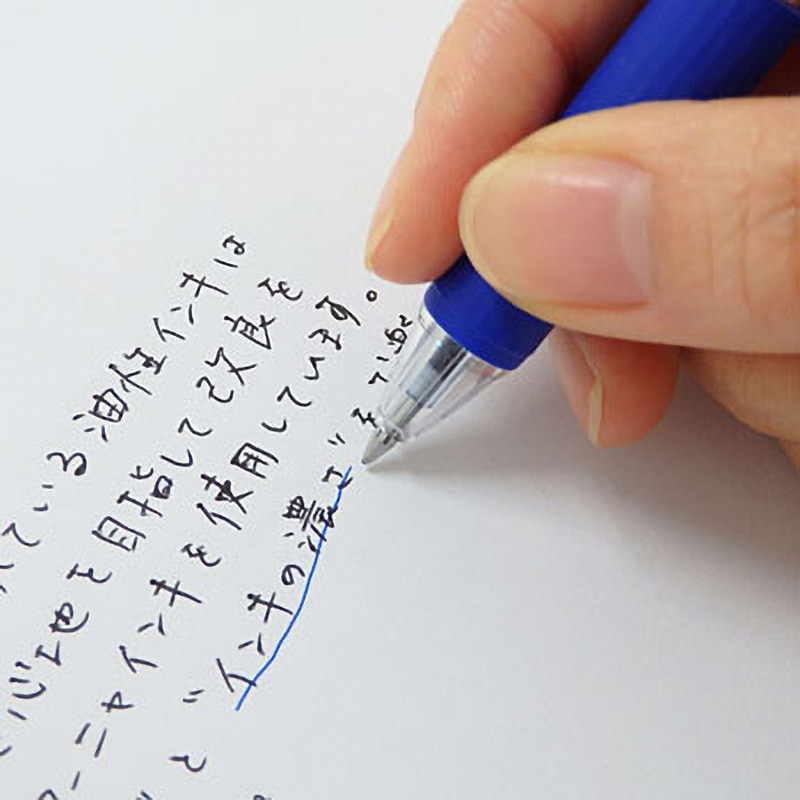 ている油性インキは
心地を目指して改良を
ーニャインキを使用しています。
と"インキの濃さ"